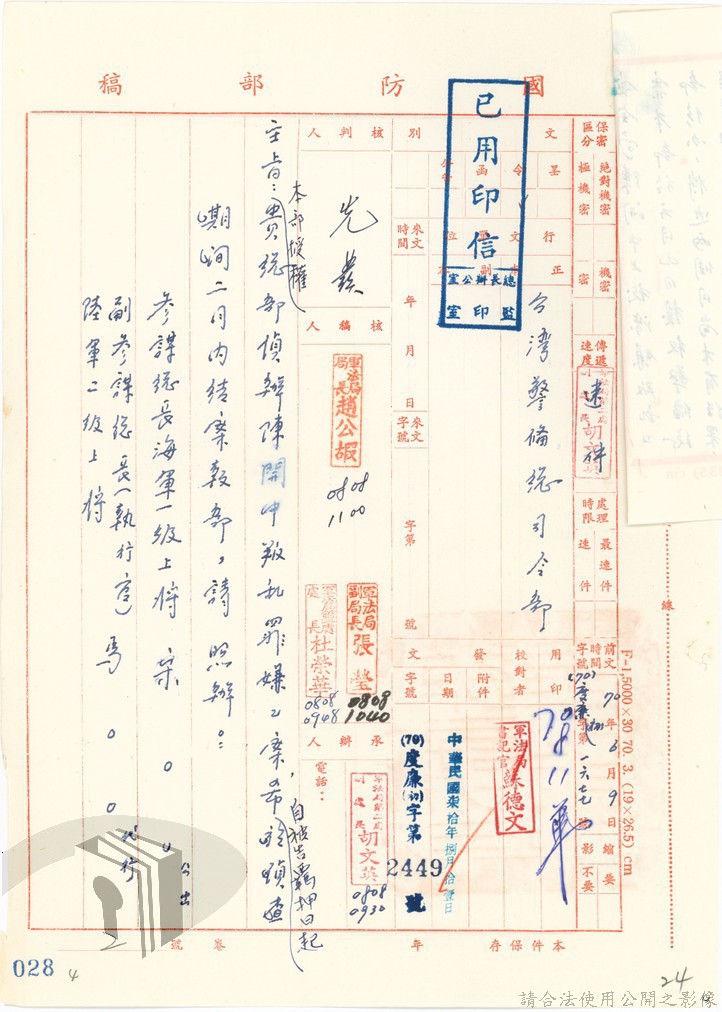 國防部稿
保密區分
絕對機密
極機密
機密
密
傳遞速度
速件
胡文英
處理時限
最速件
速件
前文時間字號
70年6月9日
一六七七號
縮影
要
不要
文別
令
函
行文單位
正
副
台灣警備總司令部
已用印信
總長辦公室
監印室
用印
校對者
軍法局書記官蘇德文
70 8 11
發文
附件
日期
字號
中華民國柒拾年捌月拾壹日
(70)度廉(初)字第
2449號
來文時間
年月日
來文字號
字第號
核判人
核稿人
軍法局局長趙公嘏
0808
1100
軍法局副局長張瑩
0808
1040
處長杜榮華
0808
0948
承辦人
電話：
胡文英
0808
0930
本部授權
主旨：貴總部偵辦陳開中叛亂罪嫌乙案，希於偵查
自被告羈押日起
期間二月內結案報部，請照辦。
參謀總長海軍一級上將宋００公出
副參謀總長（執行官）
陸軍二級上將
馬００代行
本件保存年
卷號
線
F-1,5000×30 70. 3. (19×26.5) cm
028
4
24
請合法使用公開之影像